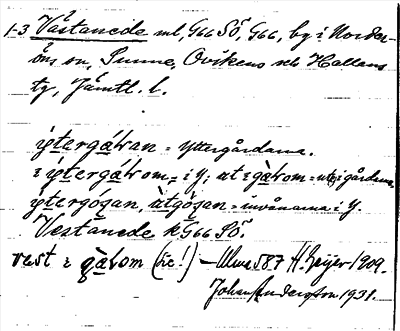 1-3 Våstanede ml, G66 SÖ, G66, by i Norder-
ön sn, Sunne, Ovikens och Hallens
tg, Jämtl. l.
ýtergáṛan = yttergårdarna.
i ýtergáṛom = i Y; ut i gàṛom = ute i gårdarna,
ýtergóṣan, ùtgóṣan = invånarna i Y.
Vestanede k G66 SÖ.
vest i gàṛom (sic!) – Ulma 587 H. Geijer 1909.
Johan 1931.